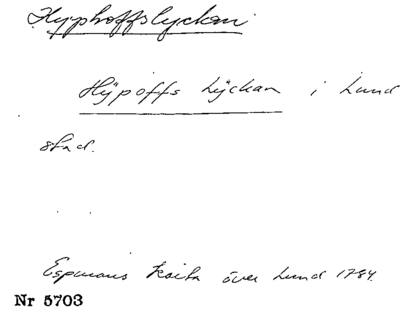 Hypphoffslyckan
Hÿpoffs Lÿckan i Lund
stad.
Espmans karta över Lund 1784.
Nr 5703